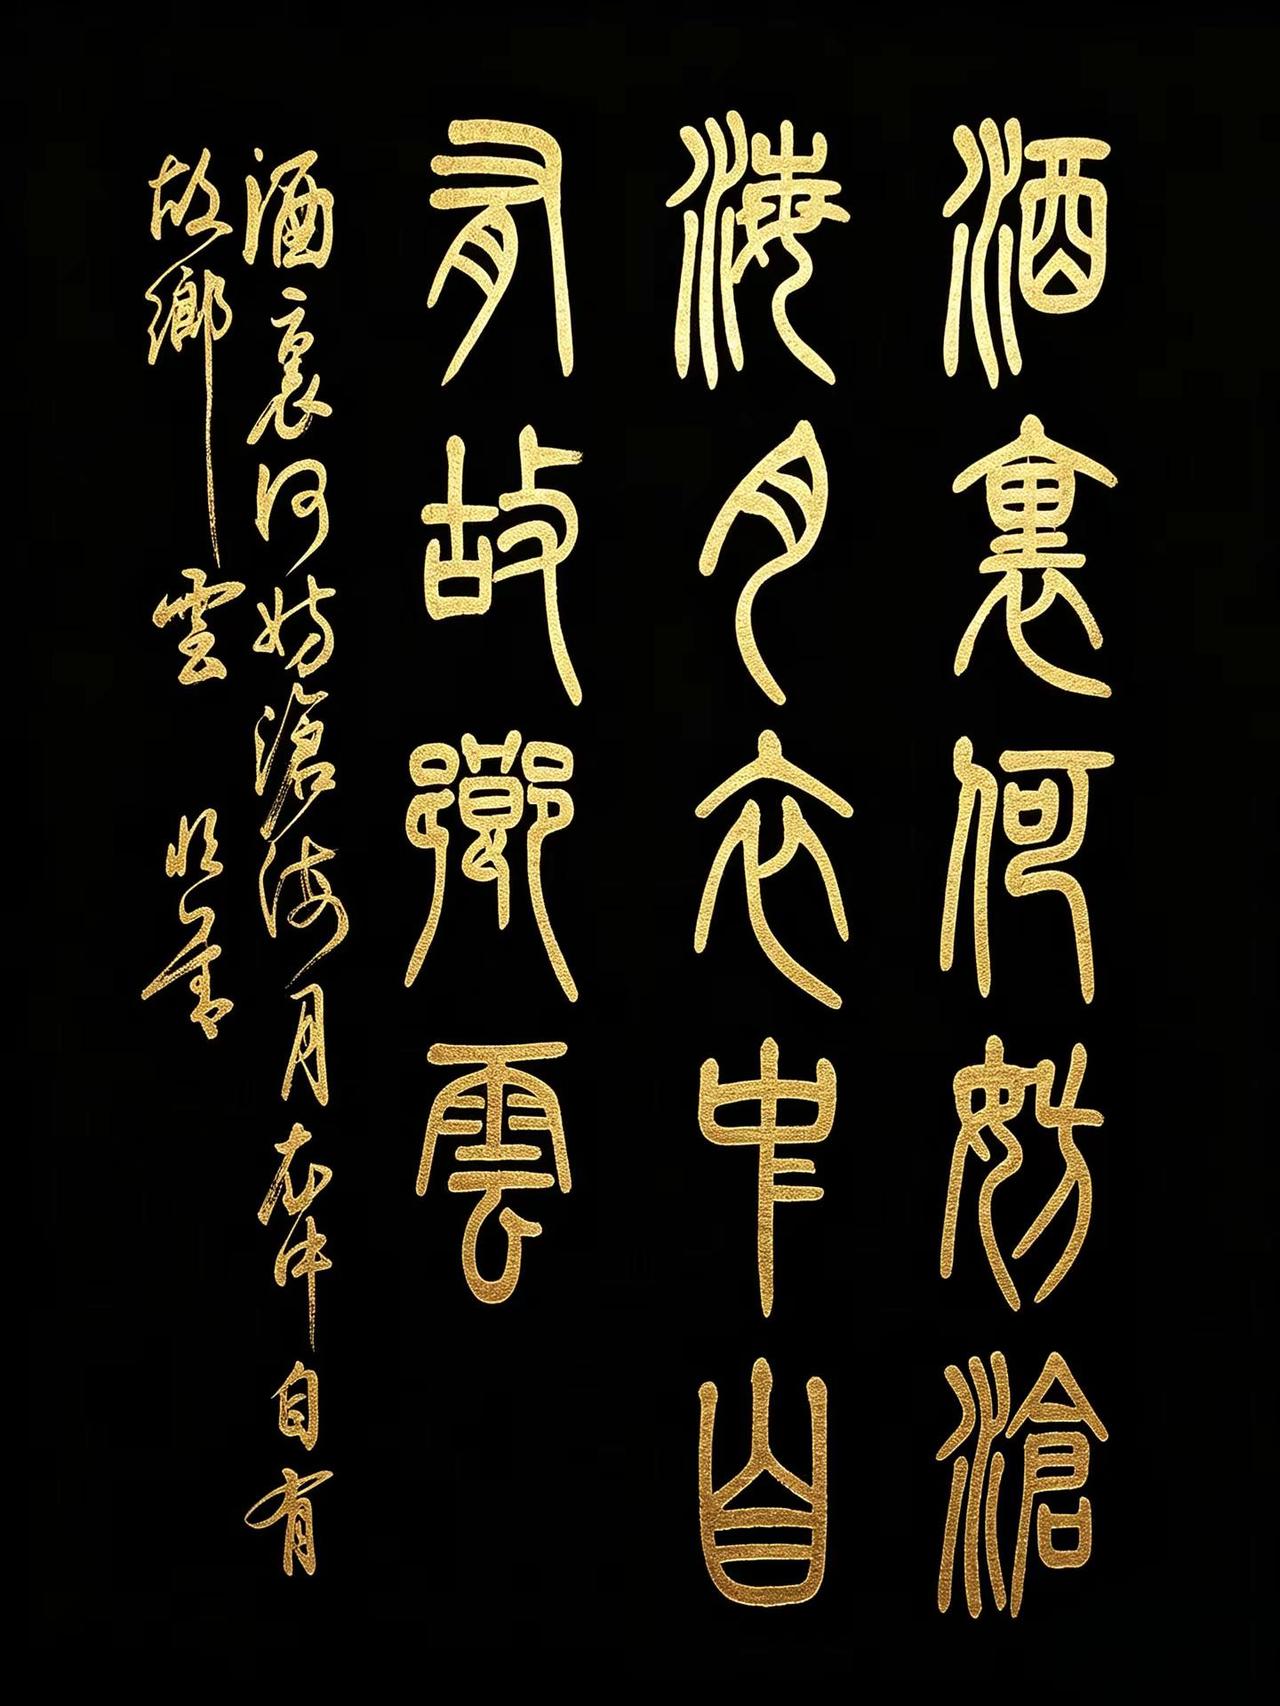 酒裏何妨滄
海月衣中自
有故鄉雲
酒裏何妨滄海月衣中自有
故鄉雲